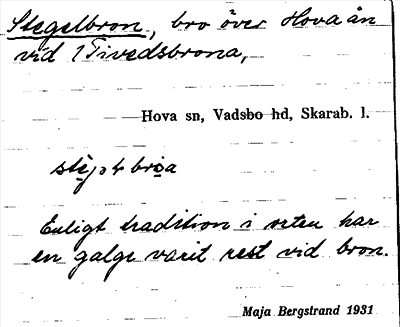 Stegelbron, bro över Hovaån
vid 1 Tivedsbrona,
Hova sn, Vadsbo hd, Skarab. l.
Enligt tradition i orten har
en galge varit rest vid bron.
Maja Bergstrand 1931